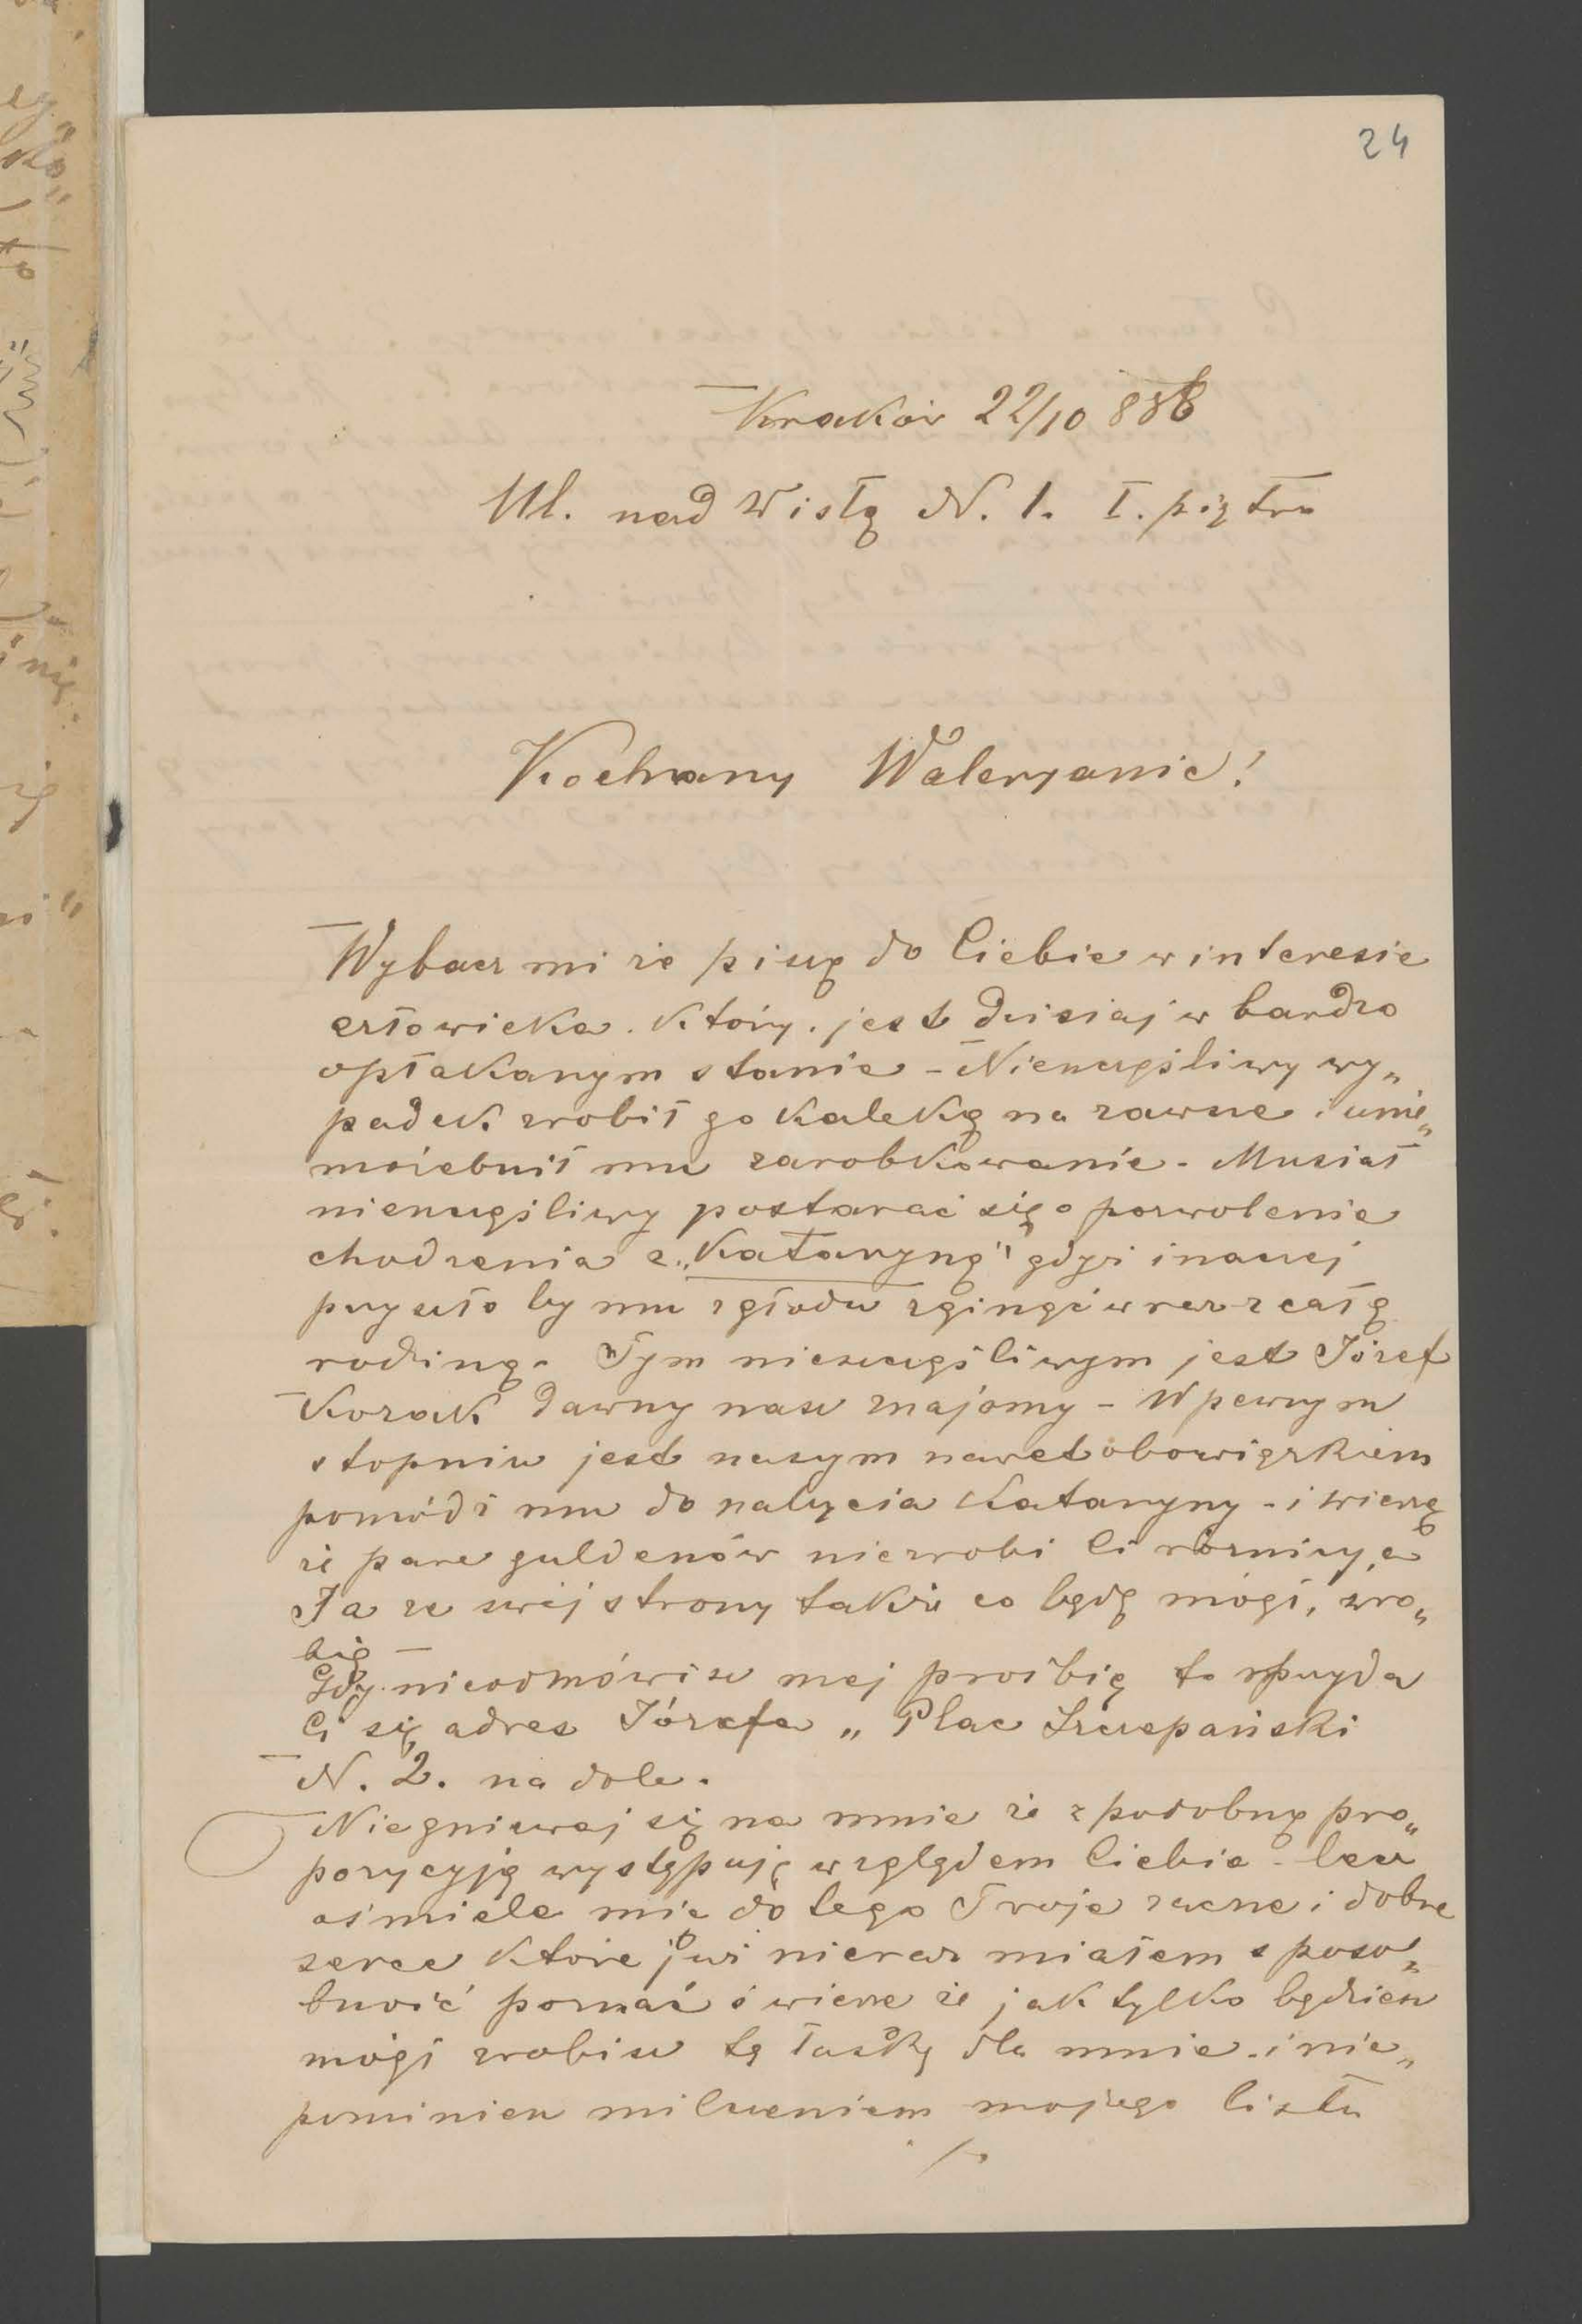 24
Kraków 22/10 886
Ul. nad Wisłą N. 1. I. piętro
Kochany Waleryanie!
Wybacz mi że piszę do Ciebie w interesie
człowieka. który. jest dzisiaj w bardzo
opłakanym stanie – Nieszczęśliwy wy„
padek zrobił go kaleką na zawsze i unie„
możebnił mu zarobkowanie. Musiał
nieszczęśliwy postarać się o pozwolenie
chodzenia z „Kataryną" gdyż inaczej
przyszło by mu z głodu zginąć wraz z całą
rodziną. Tym nieszczęśliwym jest Józef
Kozak dawny nasz znajomy – W pewnym
stopniu jest naszym nawet obowiązkiem
pomódz mu do nabycia Kataryny – i wierzę
że parę guldenów niezrobi Ci różnicy, a
Ja ze swej strony także co będę mógł, zro„
bię –
Gdy nieodmówisz mej prośbię to przyda
Ci się adres Józefa „ Plac Szczepański
N. 2. na dole.
Niegniewaj się na mnie że z podobną pro„
pozycyją występuję względem Ciebie – lecz
ośmiela mię do tego Twoje zacne i dobre
serce które już nieraz miałem sposo„
bność poznać i wierze że jak tylko będziesz
mógł zrobisz tę łaskę dla mnie i nie„
pominiesz milczeniem mojego listu